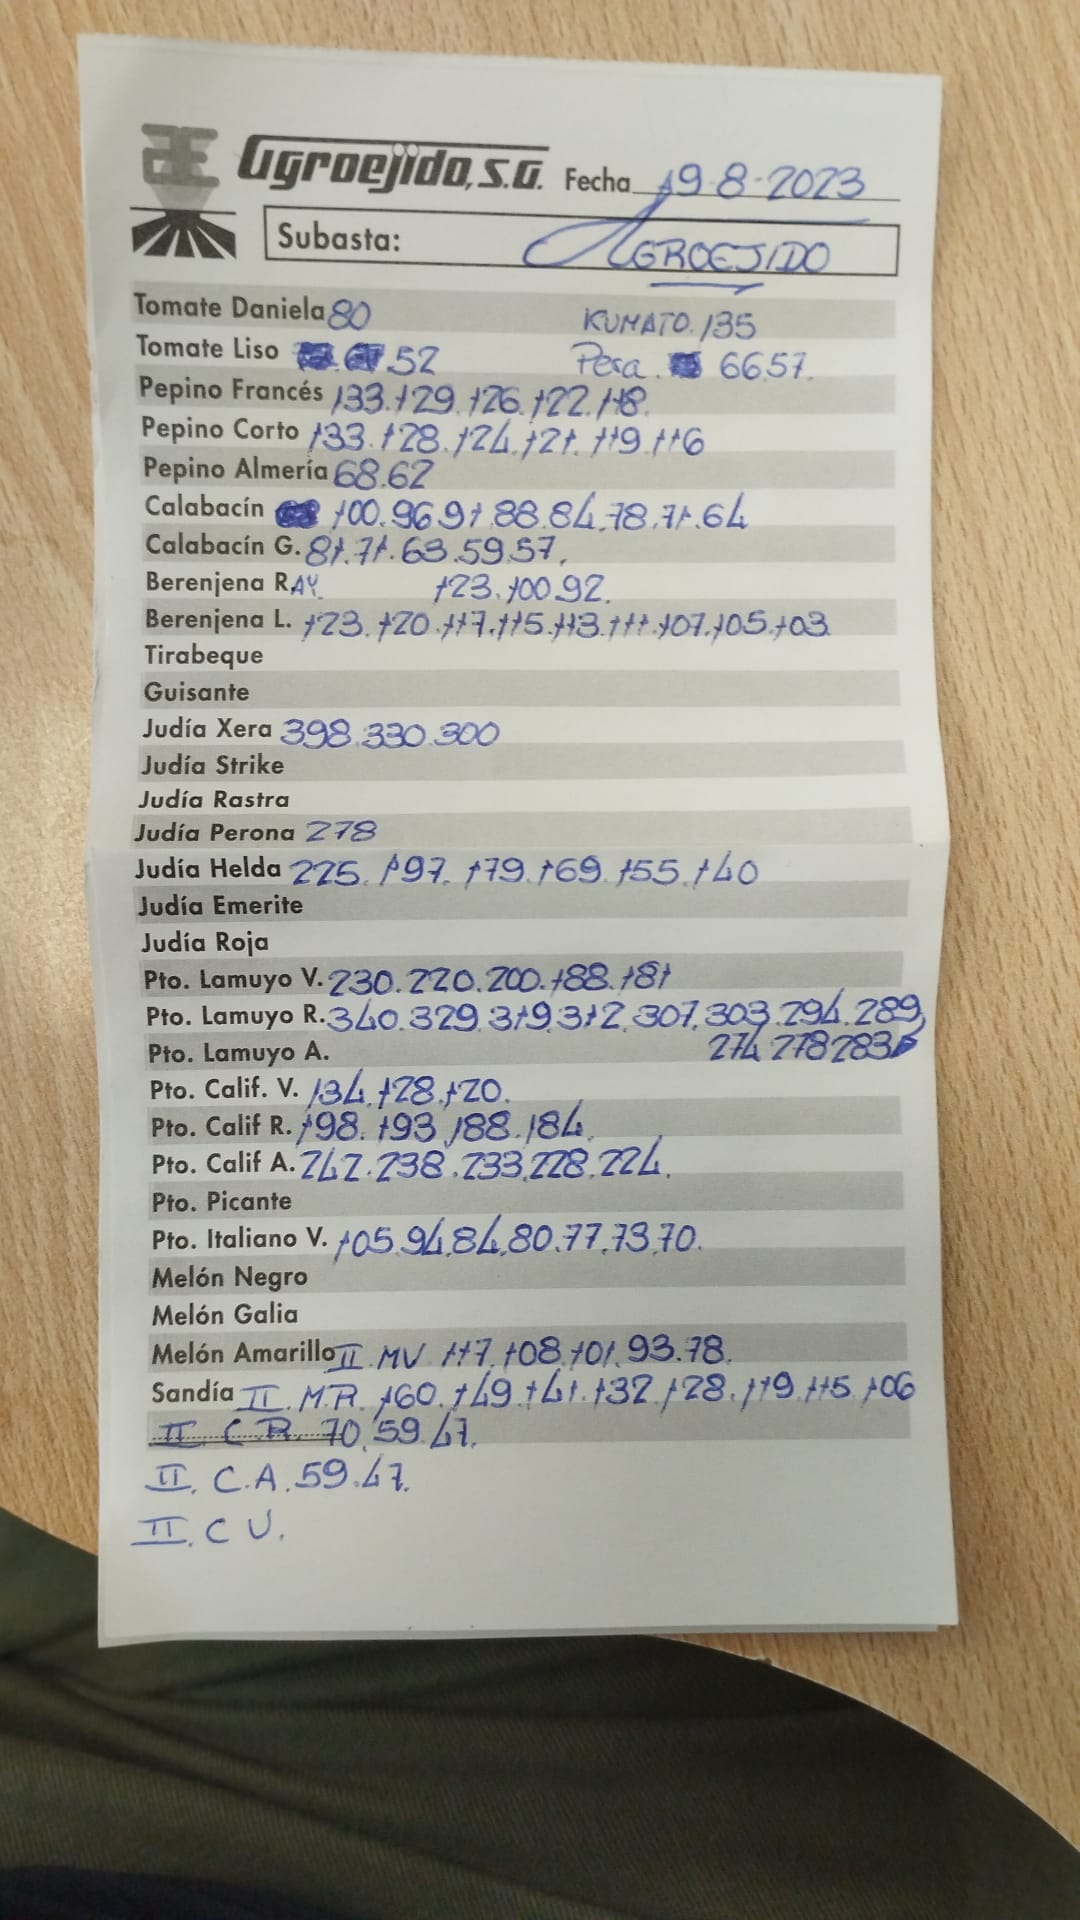 Agroejido, S.A. Fecha 19-8-2023
Subasta: AGROEJIDO
Tomate Daniela 80 KUMATO. 135
Tomate Liso 52 Pera. 66.57.
Pepino Francés 133.129.126.122.118.
Pepino Corto 133.128.124.121.119.116
Pepino Almería 68.62
Calabacín 100.96.91.88.84.78.71.64
Calabacín G. 81.71.63.59.57.
Berenjena RAY. 123.100.92.
Berenjena L. 123.120.117.115.113.111.107.105.103
Tirabeque
Guisante
Judía Xera 398.330.300
Judía Strike
Judía Rastra
Judía Perona 278
Judía Helda 225.197.179.169.155.140
Judía Emerite
Judía Roja
Pto. Lamuyo V. 230.220.200.188.181
Pto. Lamuyo R. 340.329.319.312.307.303.294.289
Pto. Lamuyo A. 274.278.283
Pto. Calif. V. 134.128.120.
Pto. Calif R. 198.193.188.184.
Pto. Calif A. 242.238.233.228.224.
Pto. Picante
Pto. Italiano V. 105.94.84.80.77.73.70.
Melón Negro
Melón Galia
Melón Amarillo II. MV 117.108.101.93.78.
Sandía II. M.R. 160.149.141.132.128.119.115.106
II C.R. 70.59.47.
II. C.A. 59.47.
II. C U.